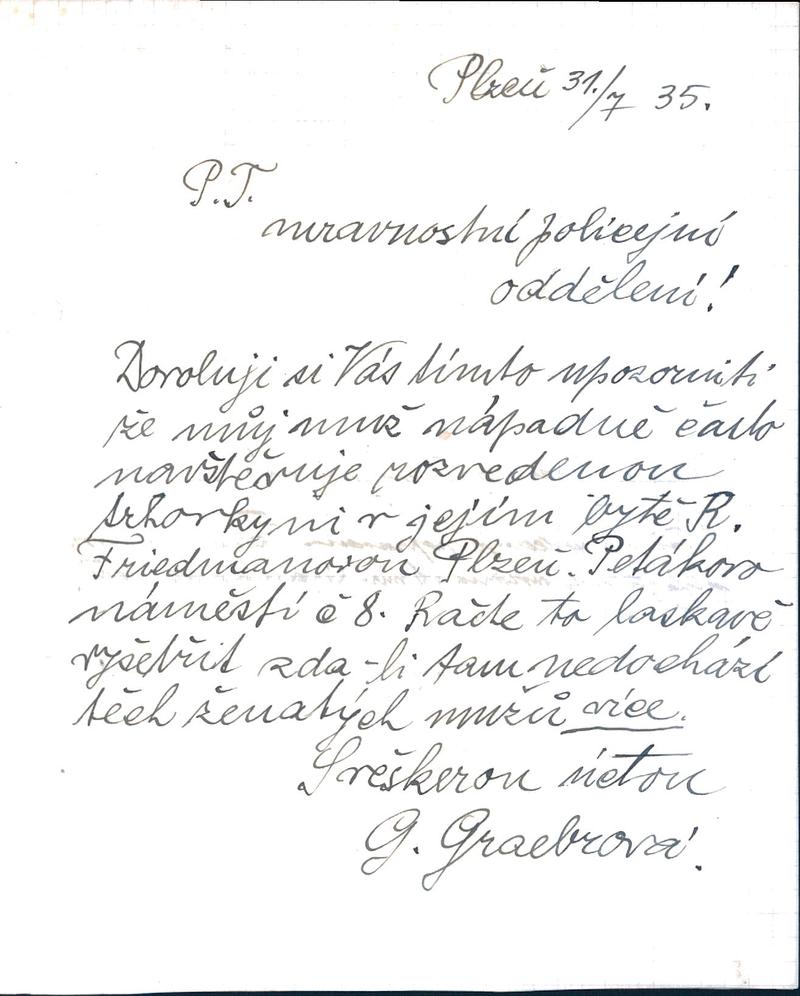 Plzeň 31./7 35.
P.T.
mravnostní policejní
oddělení!
Dovoluji si Vás tímto upozorniti
že můj muž nápadně často
navštěvuje rozvedenou
trhovkyni v jejím bytě R.
Friedmanovou Plzeň. Petákovo
náměstí č 8. Račte to laskavě
vyšetřit zda-li tam nedochází
těch ženatých mužů více.
S veškerou úctou
G. Graebrová.